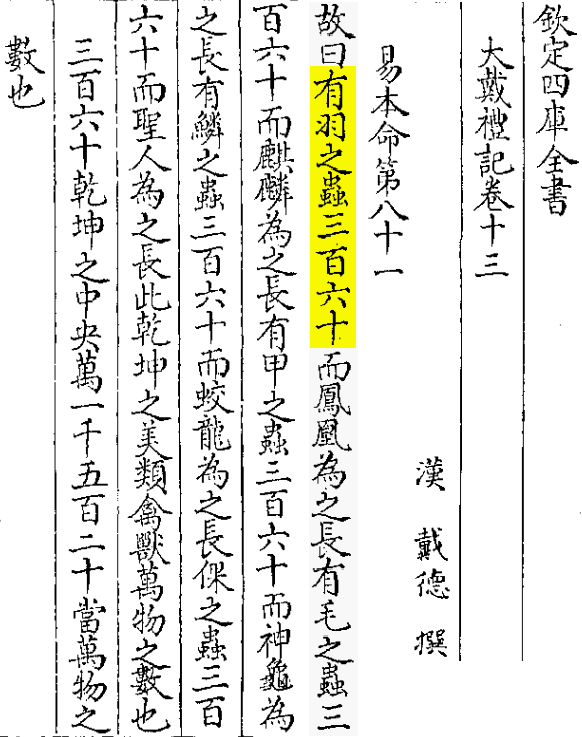 欽定四庫全書
大戴禮記卷十三
漢 戴德 撰
易本命第八十一
故曰有羽之蟲三百六十而鳳凰為之長有毛之蟲三
百六十而麒麟為之長有甲之蟲三百六十而神龜為
之長有鱗之蟲三百六十而蛟龍為之長倮之蟲三百
六十而聖人為之長此乾坤之美類禽獸萬物之數也
三百六十乾坤之中央萬一千五百二十當萬物之
數也